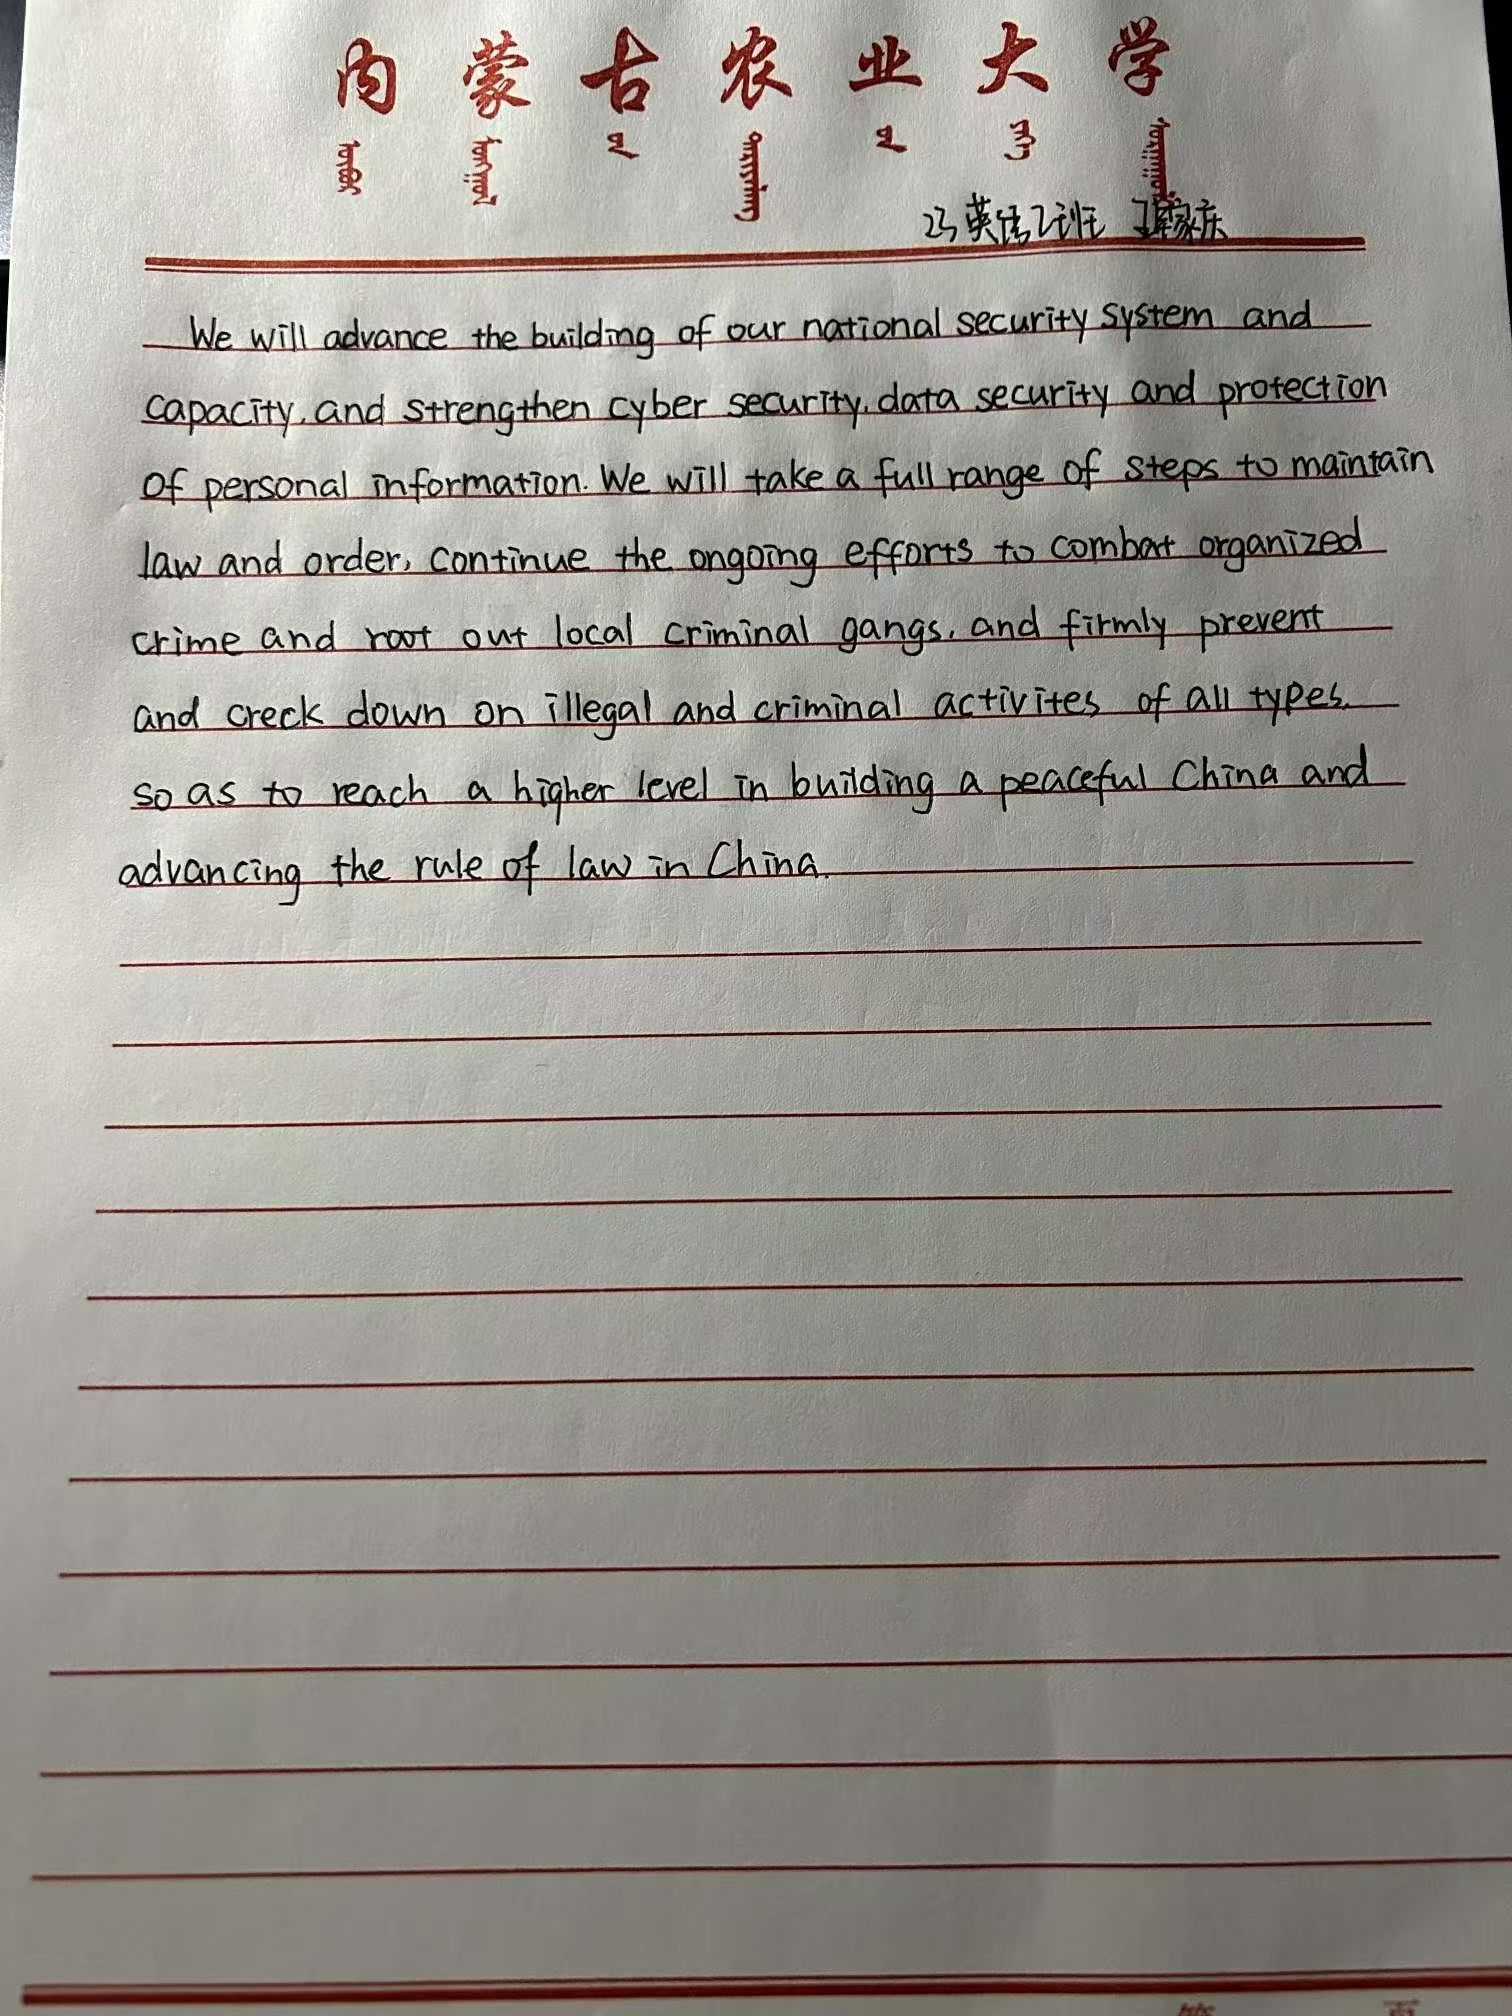 内蒙古农业大学
23英语2班
We will advance the building of our national security system and
capacity, and strengthen cyber security, data security and protection
of personal information. We will take a full range of steps to maintain
law and order, continue the ongoing efforts to combat organized
crime and root out local criminal gangs, and firmly prevent
and creck down on illegal and criminal activites of all types.
so as to reach a higher level in building a peaceful China and
advancing the rule of law in China.